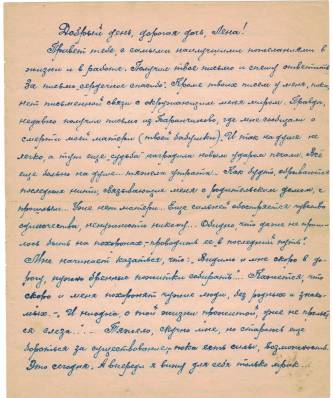 Добрый день, дорогая дочь, Лена!
Привет тебе, с самыми наилучшими пожеланиями в
жизни и в работе. Получил твое письмо и спешу ответить.
За письмо сердечное спасибо. Кроме твоих писем у меня, пока,
нет письменной связи с окружающим меня миром. Правда,
недавно получил письмо из Таранчилово, где мне сообщили о
смерти моей матери (твоей бабушки). И так на душе не
легко, а тут еще судьба наградила новым ударом
еще больно на душе. тяжела утрата. Как будто, обрываются
последние нити, связывающие меня с родительским домом, с
прошлым... Уже нет матери... Еще сильней обостряется чувство
одиночества, ненужности никому... Обидно, что даже не приш-
лось быть на похоронах - проводить ее в последний путь!
Мне начинает казаться, что: "Видимо и мне скоро в до-
рогу, нужно бренные пожитки собирать!" Кажется, что
скоро и меня похоронят чужие люди, без родных и знако-
мых. - И никогда, о той жизни прошлой, даже не прольет-
ся слеза!.. Тяжело, скучно мне, но стараюсь еще
бороться за существование, пока есть силы, возможность.
Это сегодня. А впереди я вижу для себя только мрак...